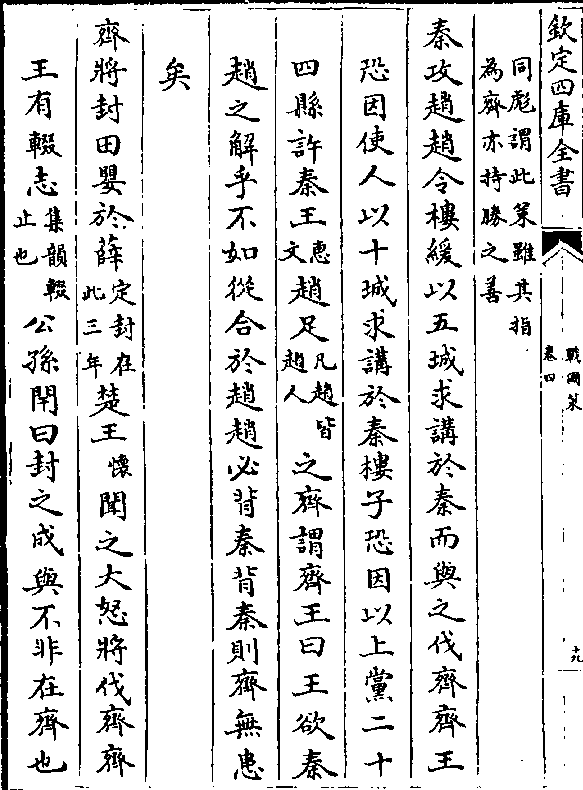 欽定四庫全書
戰國策
卷四
十九
同彪謂此策雖其指
為齊亦持勝之善
秦攻趙趙令樓緩以五城求講於秦而與之伐齊齊王
恐因使人以十城求講於秦樓子恐因以上黨二十
四縣許秦王惠文趙足凡趙皆趙人之齊謂齊王曰王欲秦
趙之解乎不如從合於趙趙必背秦背秦則齊無患
矣
齊將封田嬰於薛定封在此三年楚王懷聞之大怒將伐齊齊
王有輟志集韻輟止也公孫閈曰封之成與不非在齊也